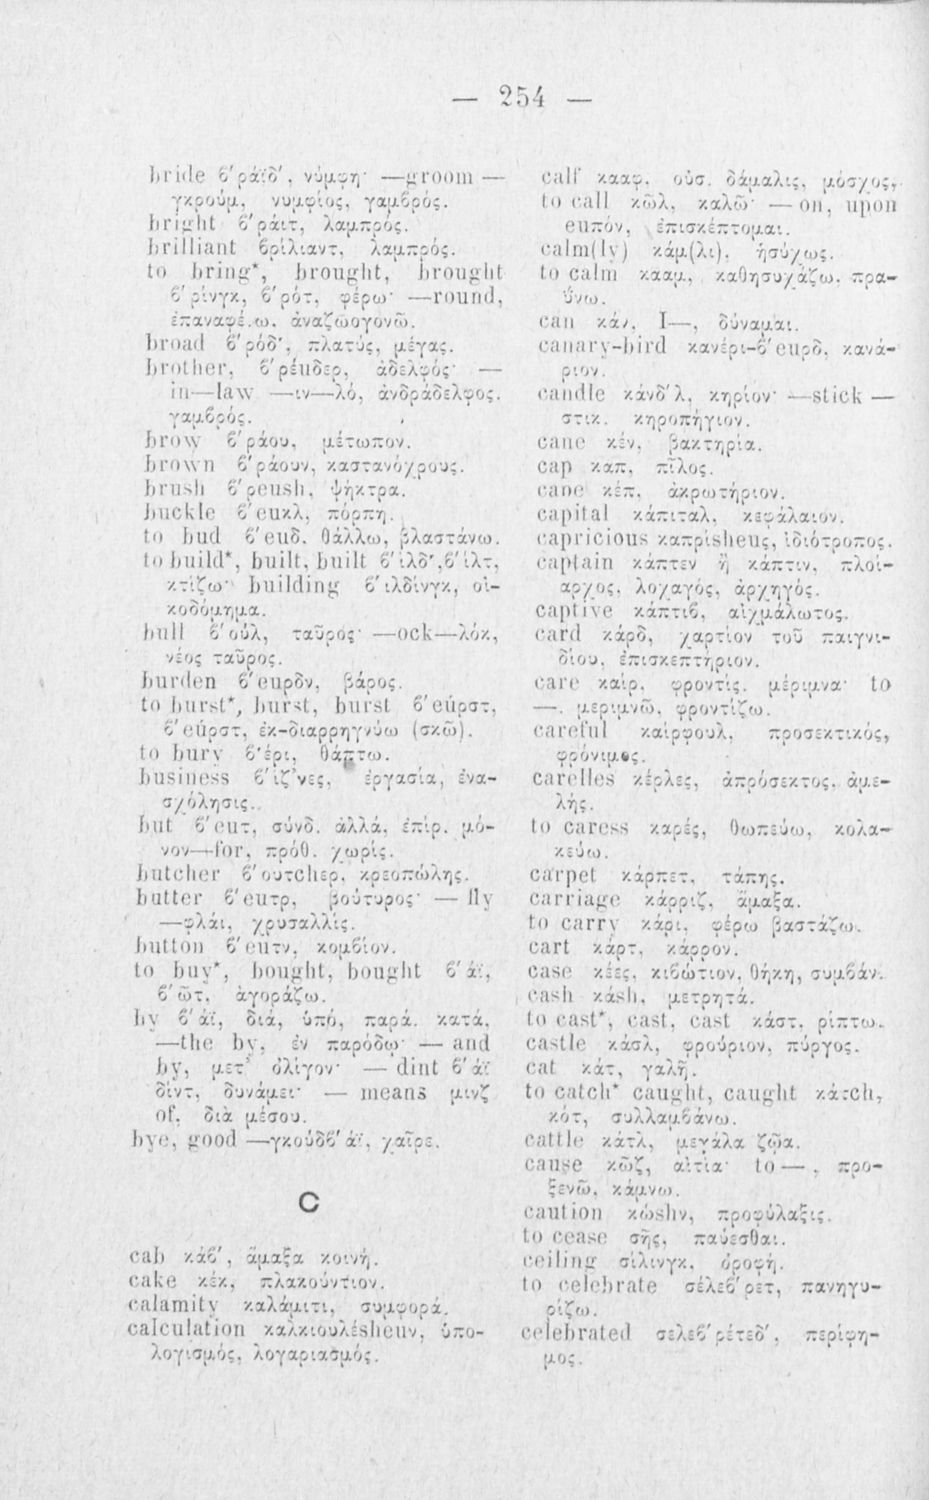 — 254 —
bride ϐ'ράϊδ', νύμφη· —groom —
γκρούμ, νυμφίος, γαμϐρός.
bright ϐ'ράιτ, λαμπρός.
brilliant ϐρίλιαντ, λαμπρός.
to bring*, brought, brought
ϐ'ρίνγκ, ϐ'ρότ, φέρω· —round,
ἐπαναφέ.ω, ἀναζωογονῶ.
broad ϐ'ρόδ', πλατύς, μέγας.
brother, ϐ'ρέυδερ, ἀδελφός· —
in—law —ιν—λό, ἀνδράδελφος,
γαμϐρός.
brow ϐ'ράου, μέτωπον.
brown ϐ'ράουν, καστανόχρους.
brush ϐ'ρευsh, ψήκτρα.
buckle ϐ'ευκλ, πόρπη.
to bud ϐ'ευδ, θάλλω, βλαστάνω.
to build*, built, built ϐ'ιλδ', ϐ'ίλτ,
κτίζω· building ϐ'ιλδίνγκ, οἰ-
κοδόμημα.
bull ϐ'ούλ, ταῦρος· —ock—λόκ,
νέος ταῦρος.
burden ϐ'ευρδν, βάρος.
to burst*, burst, burst ϐ'εύρστ,
ϐ'εύρστ, ἐκ-διαρρηγνύω (σκῶ).
to bury ϐ'έρι, θάπτω.
business ϐ'ίζ'νες, ἐργασία, ἐνα-
σχόλησις.
but ϐ'ευτ, σύνδ. ἀλλά, ἐπίρ. μό-
νον—for, πρόθ. χωρίς.
butcher ϐ'ουτcheρ, κρεοπώλης.
butter ϐ'ευτρ, βούτυρος· — fly
—φλάι, χρυσαλλίς.
button ϐ'ευτν, κομϐίον.
to buy*, bought, bought ϐ'άϊ,
ϐ'ῶτ, ἀγοράζω.
by ϐ'άϊ, διά, ὑπό, παρά, κατά,
—the by, ἐν παρόδῳ· — and
by, μετ' ὀλίγον· — dint ϐ'άϊ
δίντ, δυνάμει· — means μινζ
of, διὰ μέσου.
bye, good —γκούδϐ'άϊ, χαῖρε.
C
cab κάϐ', ἅμαξα κοινή.
cake κέκ, πλακούντιον.
calamity καλάμιτι, συμφορά.
calculation καλκιουλέsheυν, ὑπο-
λογισμός, λογαριασμός.
calf κααφ, οὐσ. δάμαλις, μόσχος,
to call κῶλ, καλῶ· —on, upon
ευπόν, ἐπισκέπτομαι.
calm(ly) κάμ(λι), ἡσύχως.
to calm κααμ, καθησυχάζω, πρα-
ΰνω.
can κάν, I—, δύναμαι.
canary-bird κανέρι-ϐ'ευρδ, κανά-
ριον.
candle κάνδ'λ, κηρίον· —stick —
στικ. κηροπήγιον.
cane κέν, βακτηρία.
cap καπ, πῖλος.
cape κέπ, ἀκρωτήριον.
capital κάπιταλ, κεφάλαιον.
capricious καπρίsheυς, ἰδιότροπος.
captain κάπτεν ἢ κάπτιν, πλοί-
αρχος, λοχαγός, ἀρχηγός.
captive κάπτιϐ, αἰχμάλωτος.
card κάρδ, χαρτίον τοῦ παιγνι-
δίου, ἐπισκεπτήριον.
care καίρ, φροντίς, μέριμνα· to
—, μεριμνῶ, φροντίζω.
careful καίρφουλ, προσεκτικός,
φρόνιμος.
carelles κέρλες, ἀπρόσεκτος, ἀμε-
λής.
to caress καρές, θωπεύω, κολα-
κεύω.
carpet κάρπετ, τάπης.
carriage κάρριζ, ἅμαξα.
to carry κάρι, φέρω βαστάζω.
cart κάρτ, κάρρον.
case κέες, κιϐώτιον, θήκη, συμϐάν.
cash κάsh, μετρητά.
to cast*, cast, cast κάστ, ρίπτω.
castle κάσλ, φρούριον, πύργος.
cat κάτ, γαλῆ.
to catch* caught, caught κάτch,
κότ, συλλαμϐάνω.
cattle κάτλ, μεγάλα ζῷα.
cause κῶζ, αἰτία· to —, προ-
ξενῶ, κάμνω.
caution κώshν, προφύλαξις.
to cease σῆς, παύεσθαι.
ceiling σίλινγκ, ὀροφή.
to celebrate σέλεϐ'ρετ, πανηγυ-
ρίζω.
celebrated σελεϐ'ρέτεδ', περίφη-
μος.